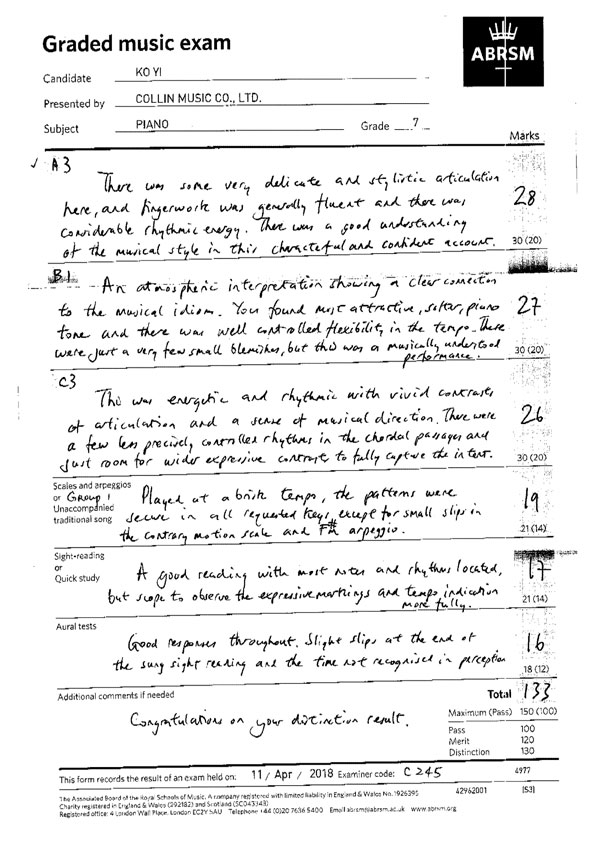 Graded music exam
ABRSM
Candidate KO YI
Presented by COLLIN MUSIC CO., LTD.
Subject PIANO Grade 7
Marks
✓ A3
There was some very delicate and stylistic articulation
here, and fingerwork was generally fluent and there was
considerable rhythmic energy. There was a good understanding
of the musical style in this characterful and confident account.
28
30 (20)
B1
An atmospheric interpretation showing a clear connection
to the musical idiom. You found most attractive, softer, piano
tone and there was well controlled flexibility in the tempo. There
were just a very few small blemishes, but this was a musically understood
performance.
27
30 (20)
C3
This was energetic and rhythmic with vivid contrasts
of articulation and a sense of musical direction. There were
a few less precisely controlled rhythms in the chordal passages and
just room for wider expressive contrasts to fully capture the intent.
26
30 (20)
Scales and arpeggios
or GROUP 1
Unaccompanied
traditional song
Played at a brisk tempo, the patterns were
secure in all requested keys, except for small slips in
the contrary motion scale and F# arpeggio.
19
21 (14)
Sight-reading
or
Quick study
A good reading with most notes and rhythms located,
but scope to observe the expressive markings and tempo indication
more fully.
17
21 (14)
Aural tests
Good responses throughout. Slight slips at the end of
the sung sight reading and the time not recognised in perception
16
18 (12)
Additional comments if needed
Congratulations on your distinction result.
Total 133
Maximum (Pass) 150 (100)
Pass 100
Merit 120
Distinction 130
This form records the result of an exam held on: 11 / Apr / 2018 Examiner code: C 245
4977
42962001 [S3]
The Associated Board of the Royal Schools of Music. A company registered with limited liability in England & Wales No. 1926395
Charity registered in England & Wales (292182) and Scotland (SC043343)
Registered office: 4 London Wall Place, London EC2Y 5AU Telephone +44 (0)20 7636 5400 Email abrsm@abrsm.ac.uk www.abrsm.org